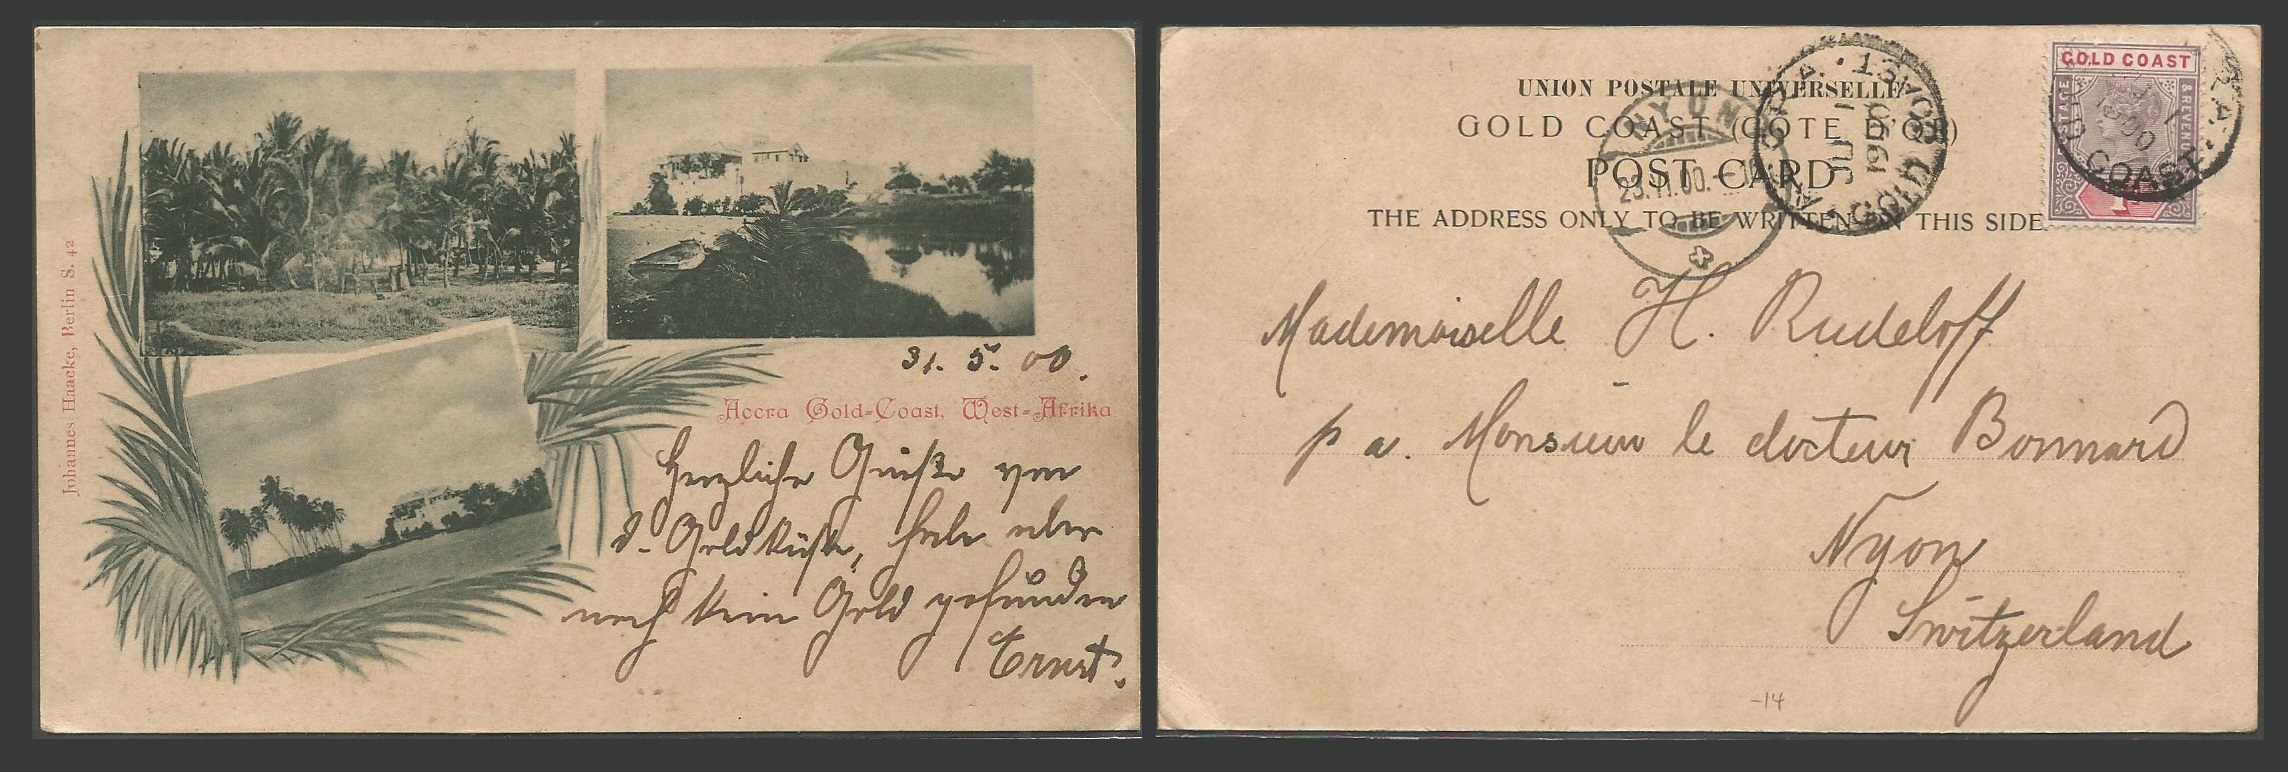 Johannes Haacke, Berlin S. 42
31. 5. 00.
Accra Gold-Coast, West-Afrika
Herzliche Grüße von
d. Goldküste, habe aber
noch kein Gold gefunden
Ernst.
UNION POSTALE UNIVERSELLE
GOLD COAST (COTE D'OR)
POST CARD
THE ADDRESS ONLY TO BE WRITTEN ON THIS SIDE
NYON
23.VI.00.
ACCRA
JU 1
1900
GOLD COAST
GOLD COAST
POSTAGE & REVENUE
COAST
Mademoiselle H. Rudeloff
p a. Monsieur le docteur Bonnard
Nyon
Switzerland
-14